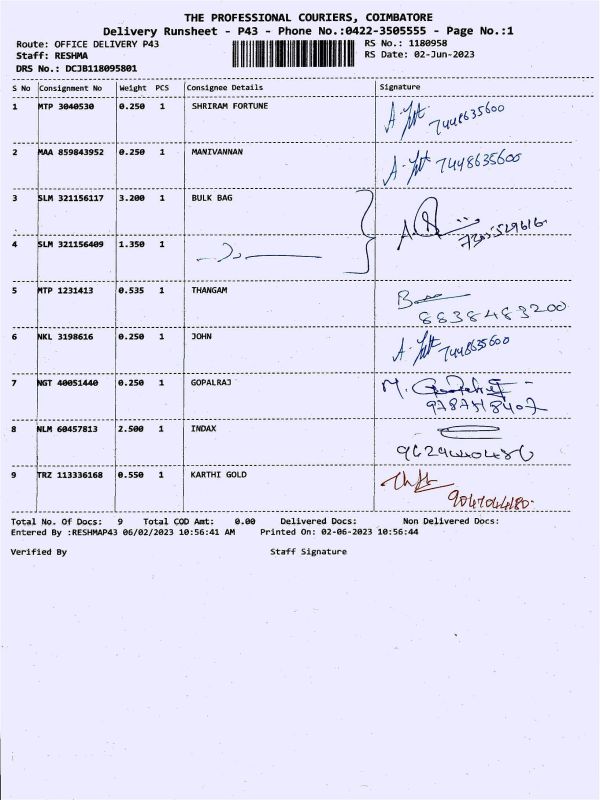 THE PROFESSIONAL COURIERS, COIMBATORE
Delivery Runsheet - P43 - Phone No.:0422-3505555 - Page No.:1
Route: OFFICE DELIVERY P43 RS No.: 1180958
Staff: RESHMA RS Date: 02-Jun-2023
DRS No.: DCJB118095801
S No Consignment No Weight PCS Consignee Details Signature
1 MTP 3040530 0.250 1 SHRIRAM FORTUNE
7448635600
2 MAA 859843952 0.250 1 MANIVANNAN 7448635600
3 SLM 321156117 3.200 1 BULK BAG
4 SLM 321156409 1.350 1
5 MTP 1231413 0.535 1 THANGAM
8838483200
6 NKL 3198616 0.250 1 JOHN
7448635600
7 NGT 40051440 0.250 1 GOPALRAJ
9787518407
8 NLM 60457813 2.500 1 INDAX
9 TRZ 113336168 0.550 1 KARTHI GOLD
9047044180
Total No. Of Docs: 9 Total COD Amt: 0.00 Delivered Docs: Non Delivered Docs:
Entered By :RESHMAP43 06/02/2023 10:56:41 AM Printed On: 02-06-2023 10:56:44
Verified By Staff Signature